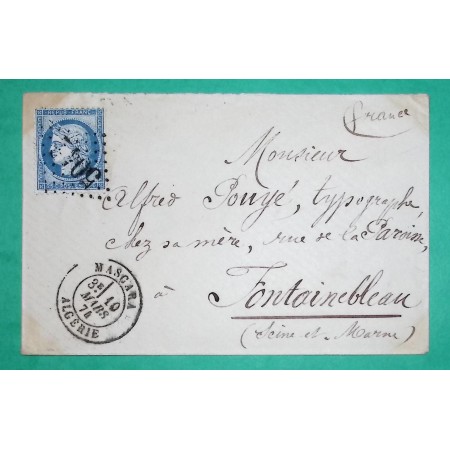 REPUB. FRANC.
(france)
Monsieur
Alfred Pouyé, typographe,
chez sa mère, rue de la Paroisse,
à Fontainebleau
(Seine et Marne)
MASCARA
3E
10
MARS
74
ALGÉRIE